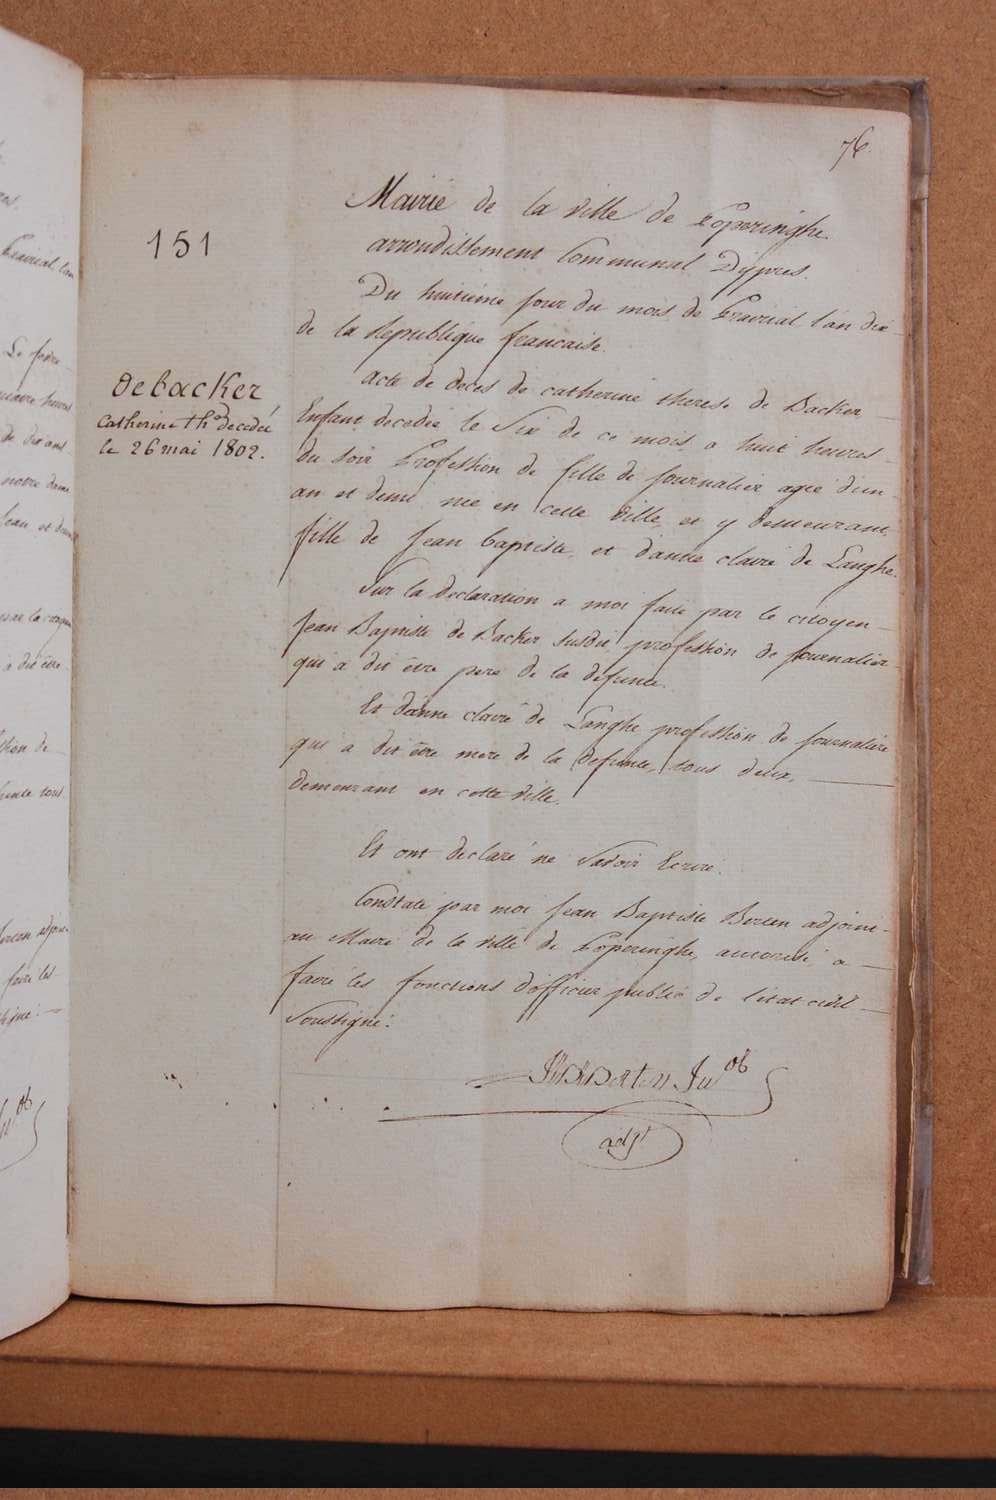 76.
151
Mairie de la ville de Poperinghe
arrondissement Communal Dypres.
Du huitieme jour du mois de Prairial l'an dix
de la Republique francaise.
Debacker
Catherine thᵉ decedée
le 26 mai 1802.
acte de deces de catherine therese de Backer
Enfant decedée le Six de ce mois a huit heures
du soir Profession de fille de journalier agée d'un
an et demi née en cette ville, et y demeurant,
fille de Jean baptiste, et d'anne claire de Langhe.
Sur la declaration a moi faite par le citoyen
Jean Baptiste de Backer susdit, profession de journalier
qui a dit être pere de la defunte.
Et d'anne claire de Langhe profession de journaliere
qui a dit être mere de la defunte, tous deux,
demeurant en cette ville.
Et ont declaré ne Savoir Ecrire.
Constaté par moi Jean Baptiste adjoint
au Maire de la ville de Poperinghe, autorisé a
faire les fonctions d'officier public de l'état civil
Soussigné.
adjt